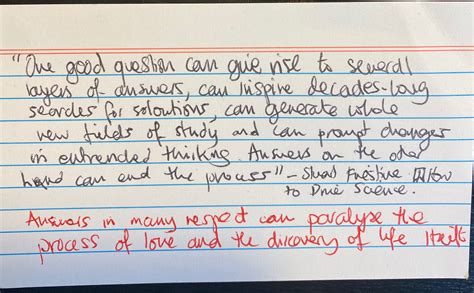 "One good question can give rise to several
layers of answers, can inspire decades-long
searches for soloutions, can generate whole
new fields of study and can prompt changes
in entrended thinking. Answers on the other
hand can end the process" - Stuart Firestine How
to Drive Science.
Answers in many respect can paralyse the
process of love and the discovery of life itself